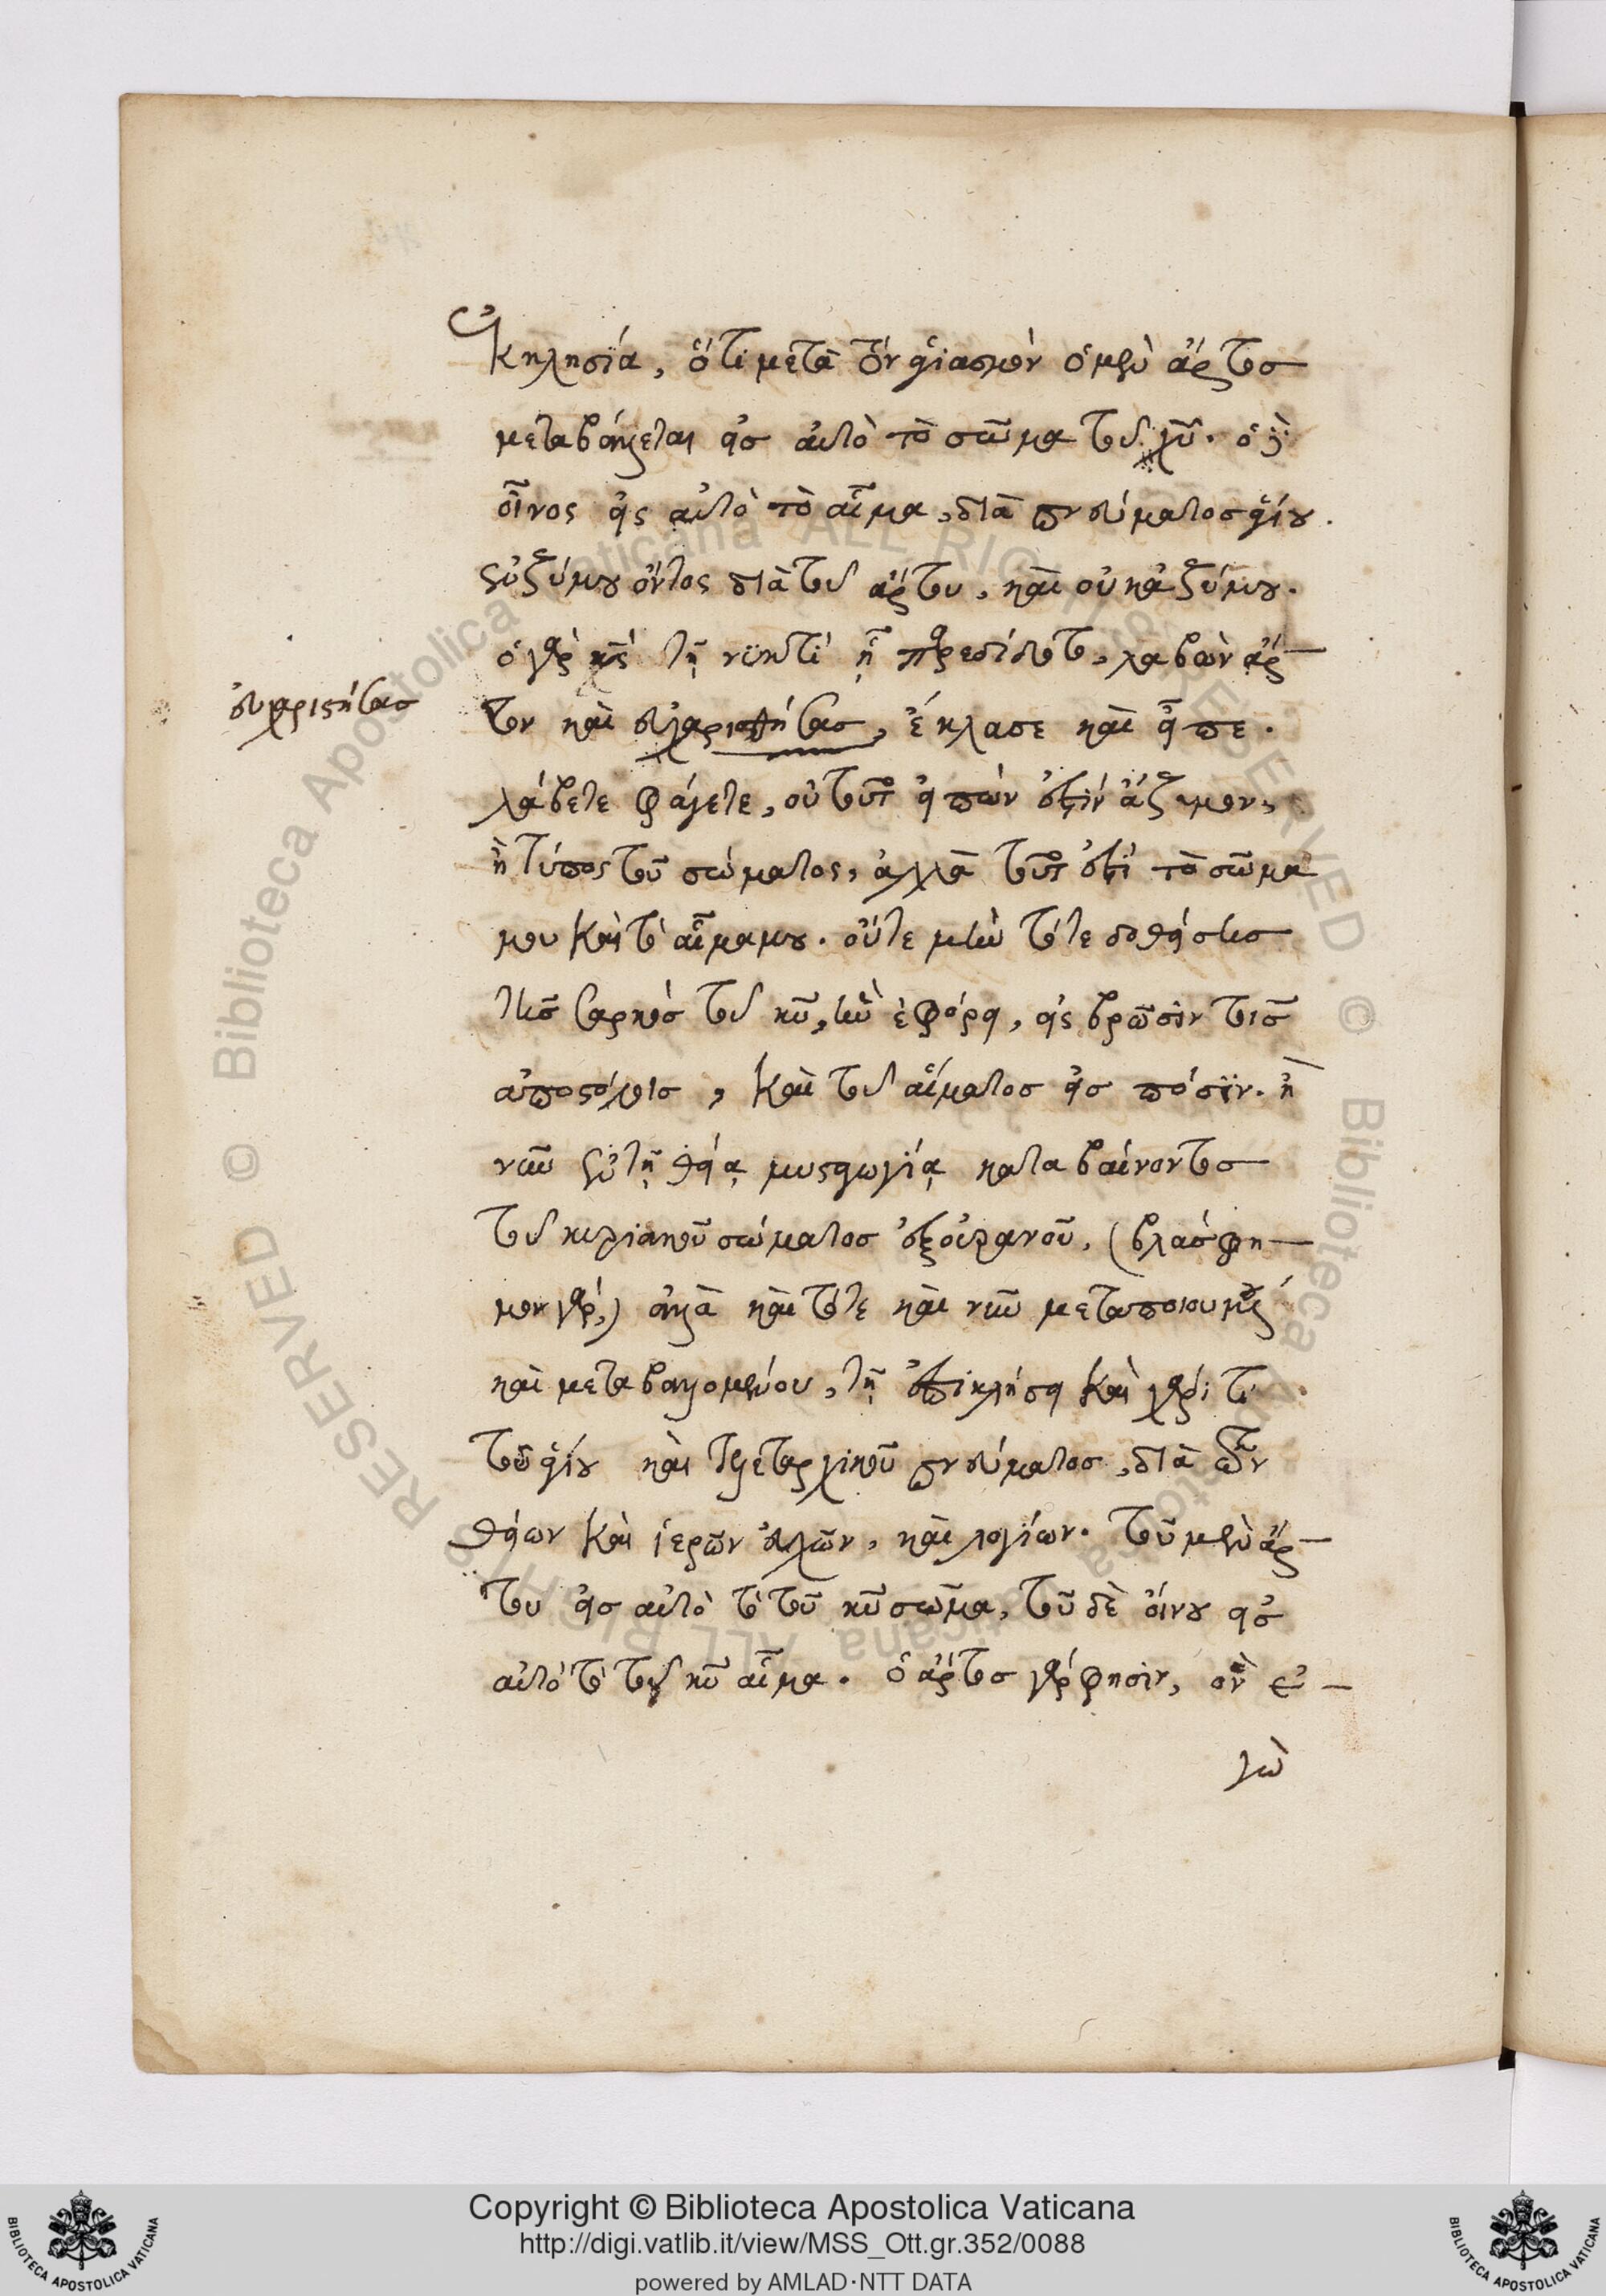 Ἐκκλησία, ὅτι μετὰ τὸν ἁγιασμὸν ὁ μὲν ἄρτος
μεταβάλλεται εἰς αὐτὸ τὸ σῶμα τοῦ χ̅υ̅. ὁ δὲ
οἶνος εἰς αὐτὸ τὸ αἷμα, διὰ πνεύματος ἁγίου.
ἐνζύμου ὄντος διὰ τοῦ ἄρτου, καὶ οὐκ ἀζύμου.
ὁ γὰρ κ̅ς̅ τῇ νυκτὶ ᾗ παρεδίδοτο, λαβὼν ἄρ-
τον καὶ εὐχαριστήσας, ἔκλασε καὶ εἶπε.
εὐχαριστήσας
λάβετε φάγετε, οὐ τοῦτο εἰπὼν ἐστὶν ἄζυμον,
ἢ τύπος τοῦ σώματος, ἀλλὰ τοῦτο ἐστὶ τὸ σῶμα
μου καὶ τὸ αἷμα μου. οὔτε μὴν τότε δοθείσης
τῆς σαρκὸς τοῦ κ̅υ̅, ἣν ἐφόρει, εἰς βρῶσιν τοῖς
ἀποστόλοις, καὶ τοῦ αἵματος εἰς πόσιν. ἢ
νῦν ἐν τῇ θείᾳ μυσταγωγίᾳ καταβαίνοντος
τοῦ κυριακοῦ σώματος ἐξ οὐρανοῦ, (βλάσφη-
μον γάρ,) ἀλλὰ καὶ τότε καὶ νῦν μεταποιουμένου
καὶ μεταβαλλομένου, τῇ ἐπικλήσει καὶ χάριτι
τοῦ ἁγίου καὶ τελεταρχικοῦ πνεύματος, διὰ τῶν
θείων καὶ ἱερῶν εὐχῶν, καὶ λογίων. τοῦ μὲν ἄρ-
του εἰς αὐτὸ τὸ τοῦ κ̅υ̅ σῶμα, τοῦ δὲ οἴνου εἰς
αὐτὸ τὸ τοῦ κ̅υ̅ αἷμα. ὁ ἄρτος γάρ φησιν, ὃν ἐ-
γὼ
Copyright © Biblioteca Apostolica Vaticana
http://digi.vatlib.it/view/MSS_Ott.gr.352/0088
powered by AMLAD·NTT DATA